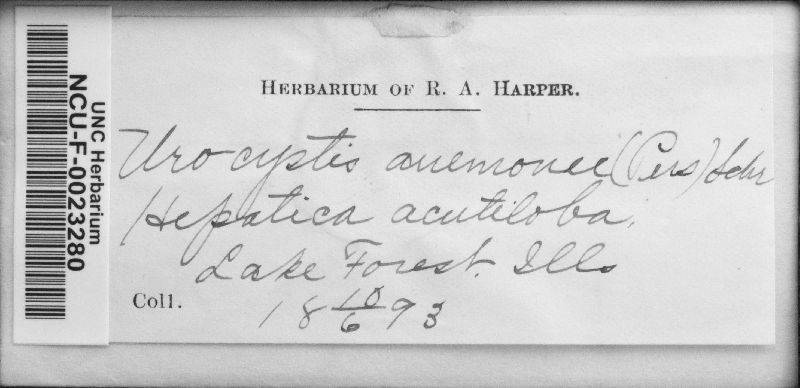 UNC Herbarium
NCU-F-0023280
HERBARIUM OF R. A. HARPER.
Urocystis anemonee (Pers) Schr
Hepatica acutiloba.
Lake Forest. Ills
Coll. 18 10/6 93